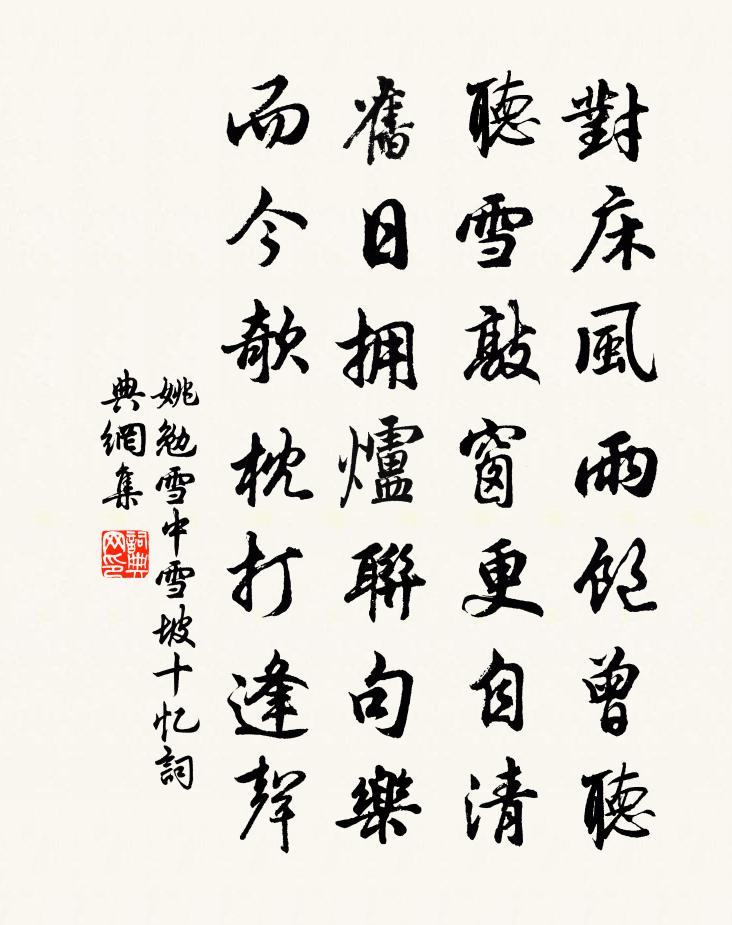 對床風雨飽曾聽
聽雪敲窗更自清
舊日拥爐聯句樂
而今欹枕打逢聲
姚勉雪中雪坡十忆詞
典網集
詞典
网印